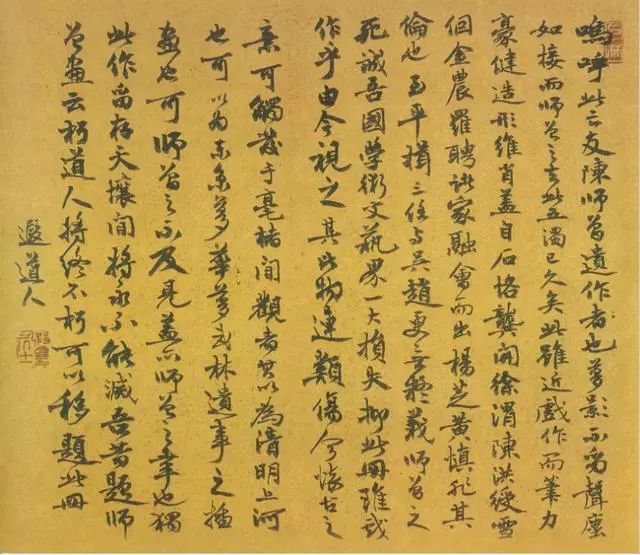 嗚呼此亡友陳師曾遺作者也夢影不留聲塵
如接而師曾之去此五濁已久矣此雖近戲作而筆力
豪健造形維肖蓋自石恪龔開徐渭陳洪綬雪
個金農羅聘諸家融會而出楊芝黃慎非其
倫也至平揖三任與吳趙更無疑義師曾之
死誠吾國學術文藝界一大損失抑此冊雖戲
作乎由今視之其比物連類傷今懷古之
意可觸發于毫楮間觀者以為清明上河
也可以為東京夢華夢武林遺事之插
畫也可師曾之不及見蓋亦師曾之幸也獨
此作留存天壤間將永不能滅吾昔題師
曾畫云朽道人將終不朽可以移題此冊
遐道人